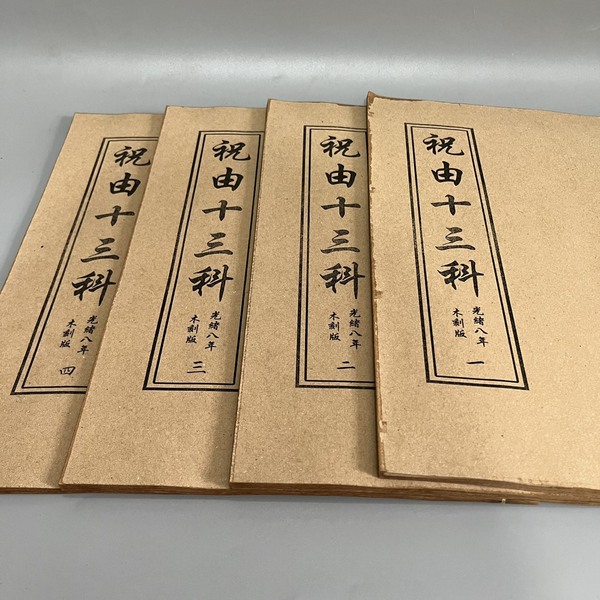 祝由十三科
光緒八年
木刻版
一
祝由十三科
光緒八年
木刻版
二
祝由十三科
光緒八年
木刻版
三
祝由十三科
光緒八年
木刻版
四